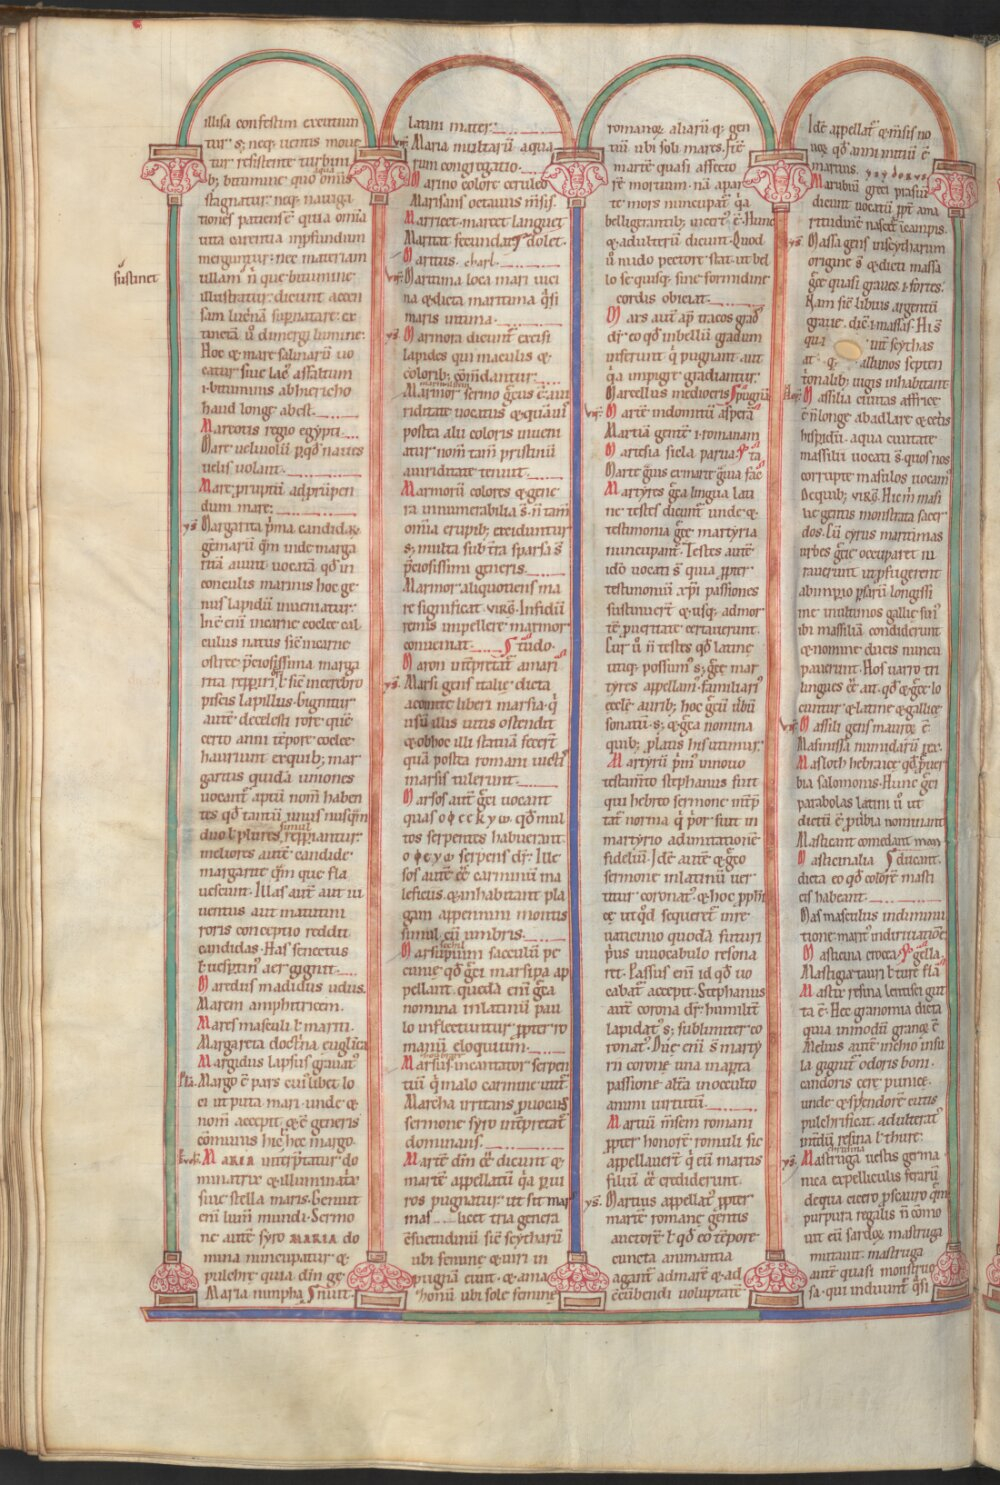 illisa confestim excutiun
tur s; neq; uentis moue
tur resistente turbini
b; bitumine quo om̄is aqua
stagnatur. neq; nauiga
tiones patiens ē quia om̄ia
uita carentia in ꝓfundum
merguntur. nec materiam
ullam n̄ que bitumine
sustinet
illustratur. dicunt accen
sam lucernā suꝑnatare. ex
tincta ū dimergi lumine.
Hoc & mare salinarū uo
catur siue lac' assaltum
.i. bituminis ab hiericho
haud longe abest.
Mareotis regio egypti.
Mare ueliuolū ꝑ qd naues
uelis uolant.
Mare pruptū adprupen
dum mare.
ys Margarita pma candidaꝝ
gemmarū qm inde marga
ritā aiunt uocatā qd in
conculis marinis hoc ge
nus lapidū inueniatur.
Inē enī in carne coclee cal
culus natus sic in carne
ostree. p̄ciosissima marga
rita reꝑiri l sic in cerebro
piscis lapillus. Gignitur
autē de celesti rore quē
certo anni tēpore coclee
hauriunt ex quib; mar
garitas quidā uniones
uocant aptū nom̄ haben
tes qd tantū unus nusq̄m
duo l plures simul reꝑiantur.
meliores autē candide
margarite q̄m que fla
uescunt. Illas aut aut iu
uentus aut matutini
roris conceptio reddit
candidas. Has senectus
l uesptin' aer gignit.
Maredus madidus udus.
Marem amphitricem.
Mares masculi l mariti.
Margareta doctrina euglica
Margidus lapsus grauat'
Pla. Margo ē pars cui'libet lo
ci ut puta mari. unde &
nom̄ accepit. & ē generis
cōmunis hic hec margo.
MARIA interptatur do
minatrix & illuminatꝰ
siue stella maris. Genuit
enī lum̄ mundi. Sermo
ne autē syro MARIA do
mina nuncupatur &
pulchre quia dn̄m ge
Maria nimpha nuit.
latini mater.
Maria multarū aqua
rum congregatio.
Marino colore ceruleo
Marsans octauus m̄sis.
Marcet. marcet languet
Maritat fecundat dolet.
Martus. charl.
Maritima loca mari uici
na & dicta maritima q̄si
maris intima.
ys Marmora dicunt excisi
lapides qui maculis &
colorib; cōm̄dantur.
Marmor sermo grecus ē. a ui
riditate uocatus & quāuis
postea alii coloris inueni
atur nom̄ tam̄ pristinū
a uiriditate tenuit.
Marmorū colores & gene
ra innumerabilia s. n̄ tam̄
om̄ia e rupib; exciduntur
s; multa sub tra sparsa s̄
p̄ciosissimi generis.
Marmor aliquotiens ma
re significat. VIRG. Infidū
remis impellere marmor
conueniat. tudo.
Maron interpretat amari
ys. Marsi gens italie dicta
a comite liberi marsia. q̄
usū illis uitis ostendit
& ob hoc illi statuā fecerunt
quā postea romani uictis
marsis tulerunt.
Marsos aut greci uocant
quas οφεεκγω. qd mul
tos serpentes habuerant.
οφεγω serpens dr. Ille
sos autē eē carminū ma
leficus. & inhabitant pla
gam appennini montis
simul cū umbris.
Marsupium sacculū pe
cunie qd greci marsipa ap
pellant. quedā enī greca
nomina in latinū pau
lo inflectuntur ꝓpter ro
manū eloquium.
Marsus. incantator serpen
tiū q̄ malo carmine utit.
Martha irritans ꝓuocans
sermone syro interptat
dominans.
Martē dm̄ eē dicunt &
martē appellatū q̄a ꝑ ui
ros pugnatur. ut sit mar
mas. licet tria genera
s̄ consuetudinū sic scytharū
ubi femine & uiri in
pugnā eunt. & ama
zonū ubi sole femine
romanoꝝ aliarū q; gen
tiū ubi soli mares. Itē
martē quasi affecto
rē mortium. nā a par
te mors nuncupat q̄a
belligerantib; incert' ē. Hunc
& adulterū dicunt. Quod
ū nudo pectore stat. ut bel
lo se quisq; sine formidine
cordis obiciat.
Mars aut ap tracos gradꝰ
dr eo qd in bellū gradum
inferunt q̄ pugnant. aut
q̄a impigre gradiantur.
Marcellus mediocris pugnā
Martē indomitū asperā
Martiā gentē .i. romanam
Martesia stela parua. ta
Marte gn̄s ex marte gn̄a fac
Martyres greca lingua lati
ne testes dicunt unde &
testimonia grece martyria
nuncupant. Testes autē
ideo uocati s̄ quia ꝓpter
testimoniū xp̄i passiones
sustinuert & usq; ad mor
tē ꝑ ueritate certauerunt.
Cur ū n̄ testes qd latine
utiq; possum' s; grece mar
tyres appellam'. familiari'
ecclē aurib; hoc grecū ūbū
sonatū. s; & greca nomina
quib; ꝑ latinis utimur.
Martyrū pm' in nouo
testamto stephanus fuit
qui hebreo sermone interp
tat norma q̄ por fuit in
martyrio ad imitationē
fideliū. Idē autē & greco
sermone in latinū uer
titur coronat'. & hoc prophi
cē ut qd sequeret in re
uaticinio quodā futuri
prius in uocabulo resona
ret. Passus enī id qd uo
cabat accepit. Stephanus
autē corona dr. humilit
lapidat'. s; sublimiter co
ronat'. Due enī s̄ marty
rii corone una in apta
passione altā in occulto
animi uirtutū.
Martiū m̄sem romani
ꝓpter honorē romuli sic
appellauert q̄ eū martis
filiū eē crediderint.
ys. Martius appellat' ꝓpter
martē romane gentis
auctorē l qd eo tēpore
cuncta animantia
agant ad marē & ad
cōcūbendi uoluptatē
Idē appellat & m̄sis no
uoꝝ qd anni initiū ē
martius.
Marubiū greci prasiū
dicunt uocatū ꝓpt ama
ritudinē nascit in campis.
ys. Massa gens in scytharum
origine s̄ & dicti massa
gete quasi graues .i. fortes.
Nam sic liuius argentū
graue. dic .i. massas. Hi s̄
qui int scythas
at q; albanos septen
trionalib; iugis inhabitant
Massilia ciuitas affrice
ē n̄ longe ab adlare & ortis
hesperidū. a qua ciuitate
massilii uocati s̄. quos nos
corrupte masulos uocam'
De quib; VIRG. Hic m̄ masi
lie gentis monstrata sacer
dos. Cū cyrus maritimas
urbes grecie occuparet iu
rauerunt ut ꝓfugerent
ab imꝑio psarū longissi
me in ultimos gallie fini'
ibi massiliā condiderunt
& nomine ducis nuncu
pauerunt. Hos uarro tri
lingues eē ait. qd & grece lo
cuntur & latine & gallice
Massili gens mauroꝝ ē.
Masinissa numidarū rex.
Masloth hebraice qd ꝓuer
bia salomonis. Hunc greci
parabolas latini ū ut
dictū ē ꝓuerbia nominant
Masticant comedant mon
Masticinalia ducant.
dicta eo qd colorē masti
cis habeant.
Mas masculus in diminui
tione. marit' in diriuatione
Masticina crocea. gella.
Mastigia tauri l ture fla
Mastix resina lentisci gut
ta ē. Hec granomia dicta
quia in modū granoꝝ ē
Melius autē in chio insu
la gignit odoris boni.
candoris cere punice.
unde & splendorē cutis
pulchrificat. adulterat'
interdū resina l thure.
ys. Mastruga uestis germa
nica ex pelliculis ferarū
de qua cicero ꝓ scauro q̄m
purpura regalis n̄ cōmo
uit eū sardoꝝ mastruga
mutauit. mastruga
autē quasi monstruo
sa. qui induunt q̄si